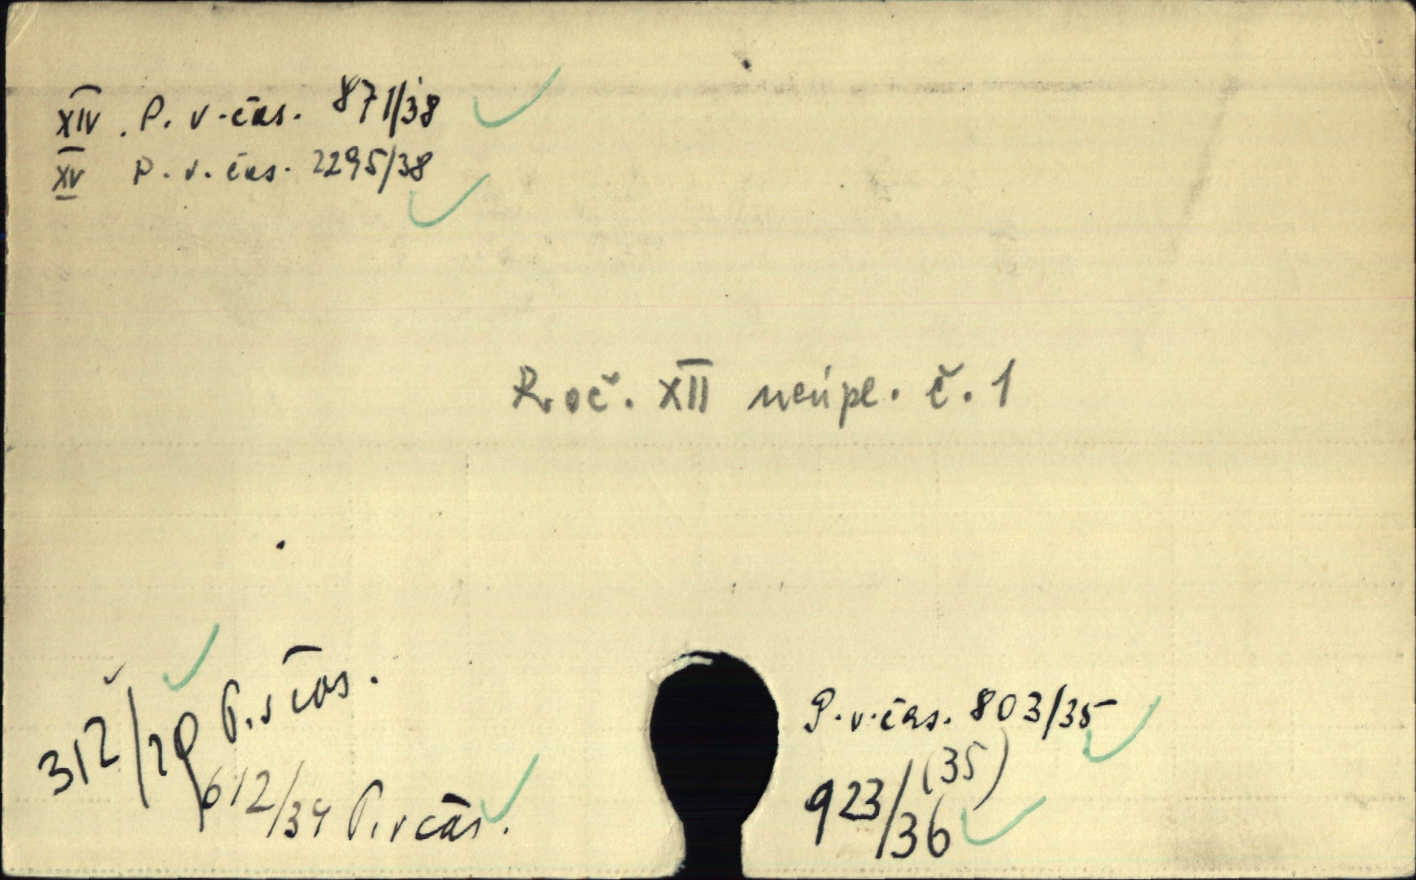 XIV . P. v. čas. 871/38
XV P. v. čas. 2295/38
Roč. XII neúpl. č. 1
312/29 P. v čas.
612/34 P. v čas.
P. v. čas. 803/35
(35)
923/36